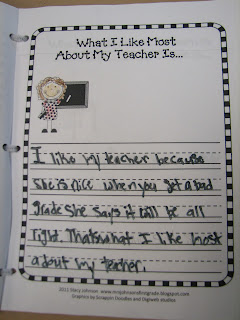 What I Like Most
About My Teacher Is...
I like my teacher because
she is nice when you get a bad
grade she says it will be all
right. That's what I like most
about my teacher.
2011 Stacy Johnson, www.missjohnsonsfirstgrade.blogspot.com
Graphics by Scrappin Doodles and DigiWeb Studios